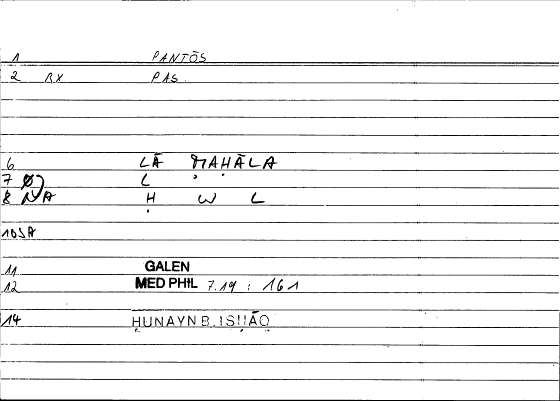 1 PANTŌS
2 RX PAS.
6 LĀ MAḤĀLA
7 Ø) L
8 NA Ḥ W L
10SA
11 GALEN
12 MED PHIL 7.19 : 161
14 ḤUNAYN B. ISḤĀQ